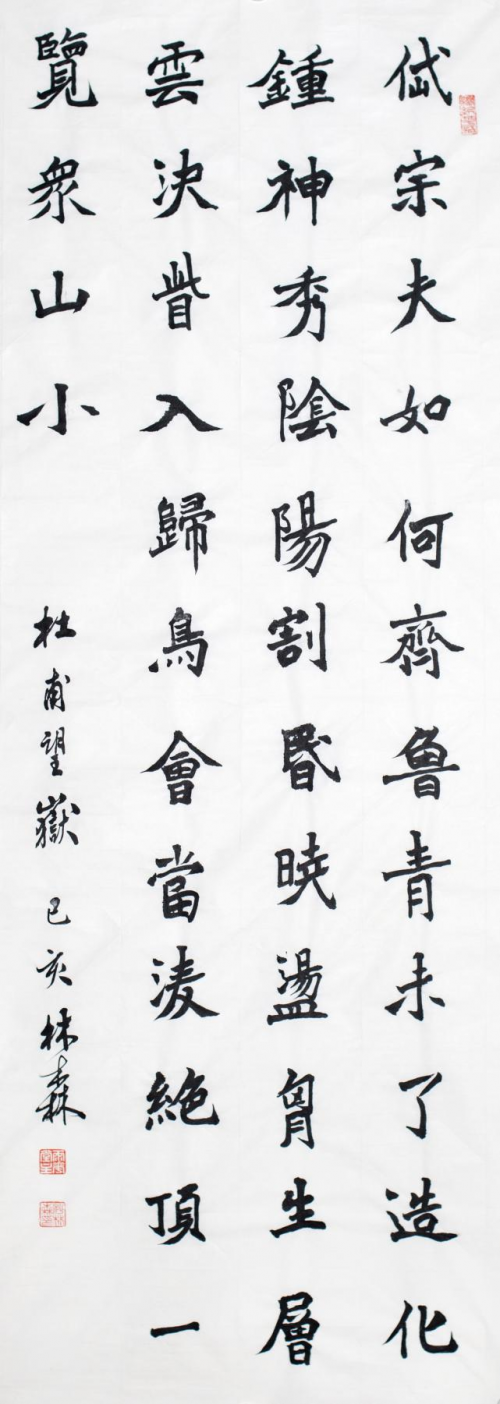 岱宗夫如何齊魯青未了造化
鍾神秀陰陽割昬暁盪胷生層
雲決眥入歸鳥會當淩絶頂一
覽衆山小
杜甫望嶽 己亥 林森